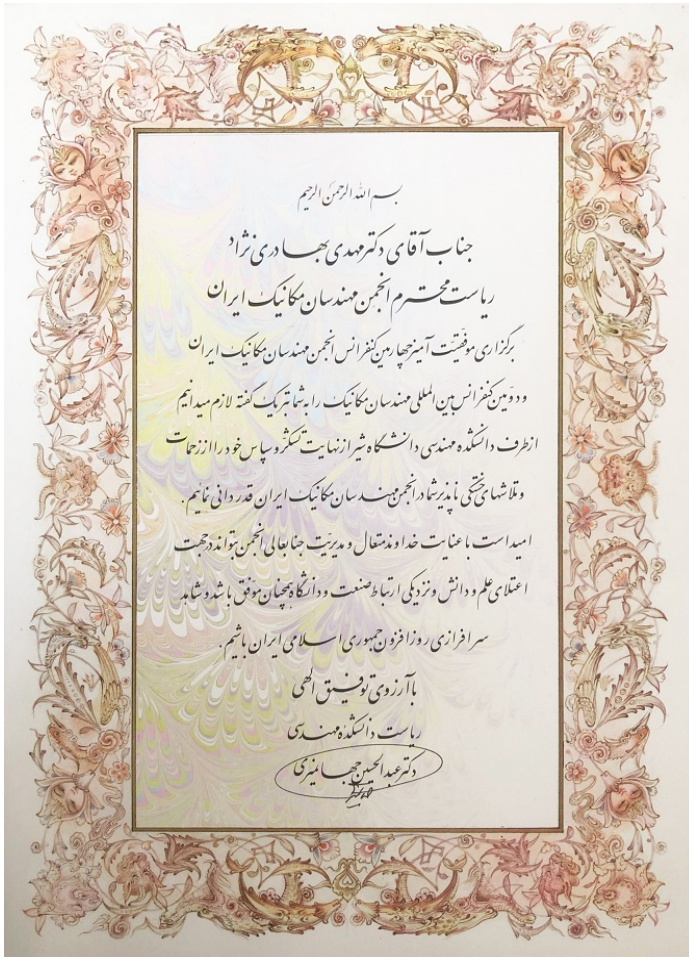 بسم الله الرحمن الرحیم
جناب آقای دکتر مهدی بهادری نژاد
ریاست محترم انجمن مهندسان مکانیک ایران
برگزاری موفقیت آمیز چهارمین کنفرانس انجمن مهندسان مکانیک ایران
و دومین کنفرانس بین المللی مهندسان مکانیک را به شما تبریک گفته لازم میدانیم
از طرف دانشکده مهندسی دانشگاه شیراز نهایت تشکر و سپاس خود را از زحمات
و تلاشهای خستگی ناپذیر شما در انجمن مهندسان مکانیک ایران قدردانی نمائیم.
امید است با عنایت خداوند متعال و مدیریت جنابعالی انجمن بتواند در جهت
اعتلای علم و دانش و نزدیکی ارتباط صنعت و دانشگاه همچنان موفق باشد و شاهد
سرافرازی روز افزون جمهوری اسلامی ایران باشیم.
با آرزوی توفیق الهی
ریاست دانشکده مهندسی
دکتر عبدالحسین جهانمیری